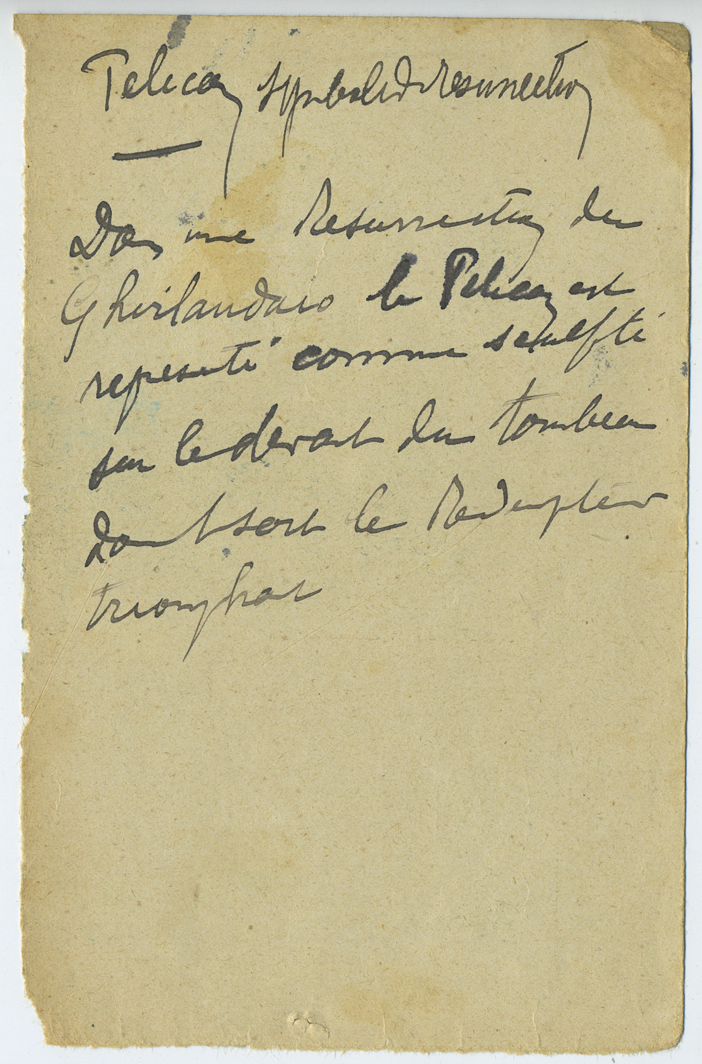 Pelican symbole de resurrection
Dans une Resurrection de
Ghirlandaio le Pelican est
represente comme sculpté
sur le devant du tombeau
dont sort le Redempteur
triomphant